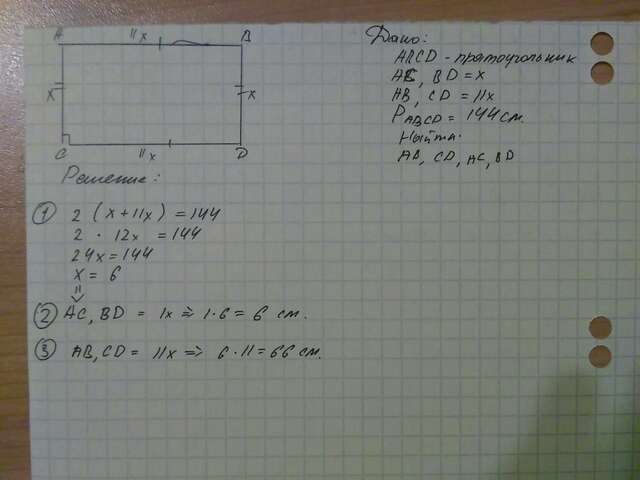 A 11x B
x x
C 11x D
Дано:
ABCD - прямоугольник
AC, BD = x
AB, CD = 11x
PABCD = 144 см.
Найти:
AB, CD, AC, BD
Решение:
① 2 (x + 11x) = 144
2 · 12x = 144
24x = 144
x = 6
⇓
② AC, BD = 1x => 1·6 = 6 см.
③ AB, CD = 11x => 6·11 = 66 см.